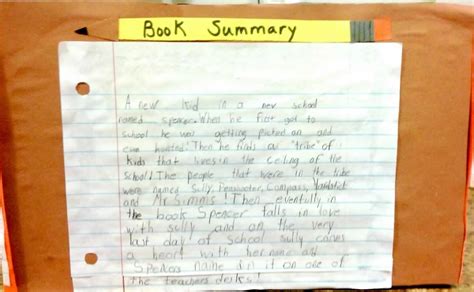 Book Summary
A new kid in a new school
named spencer. When he first got to
school he was getting picked on and
even Then he finds a "tribe" of
kids that lives in the ceiling of the
school! The people that were in the tribe
were named Sully, Pensivater, Compass, Yardstick
and Mr. Simms! Then eventully in
the book Spencer falls in love
with sully and on the very
last day of school sully carves
a heart with her name and
Spencers name in it on one of
the teachers desks!